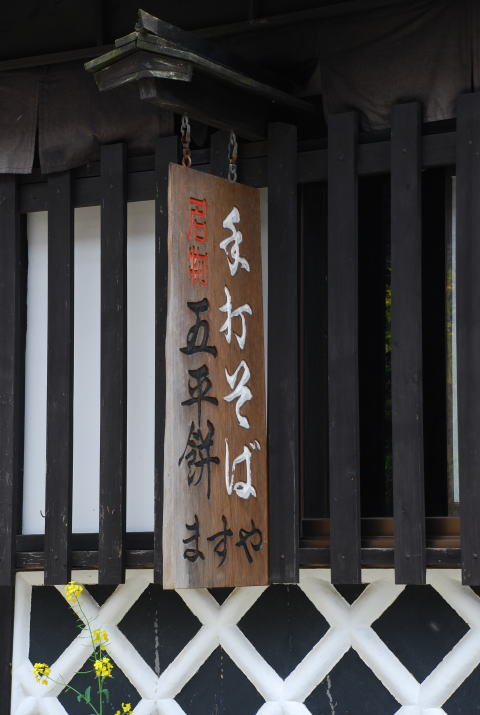 手打そば
名物
五平餅
ますや